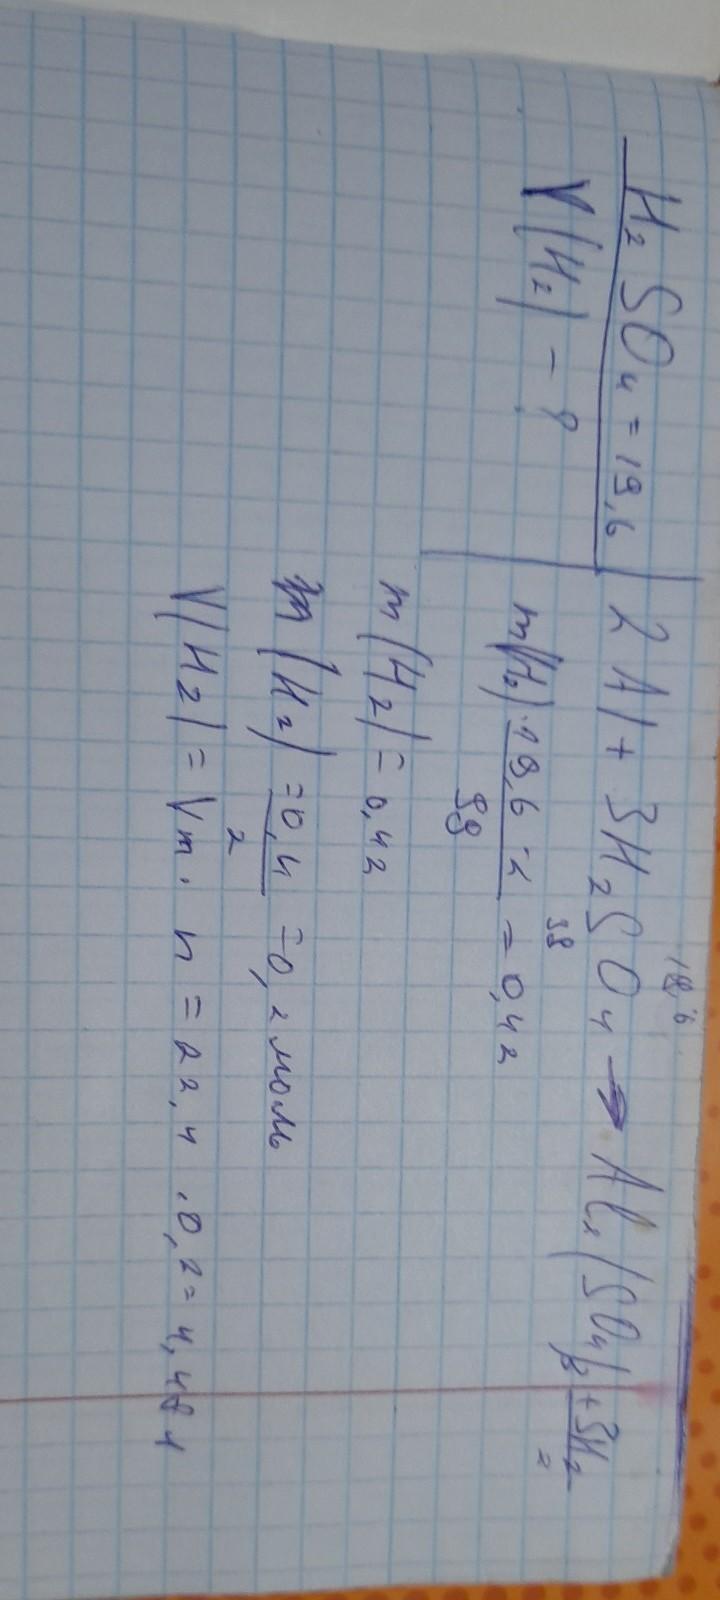 H₂SO₄ = 19,6
V(H₂) - ?
19,6
2Al + 3H₂SO₄ → Al₂(SO₄)₃ + 3H₂
98 2
m(H₂) = 19,6 · 2 / 98 = 0,4г
m(H₂) = 0,4г
(H₂) = 0,4 / 2 = 0,2 моль
V(H₂) = Vm · n = 22,4 · 0,2 = 4,48 л